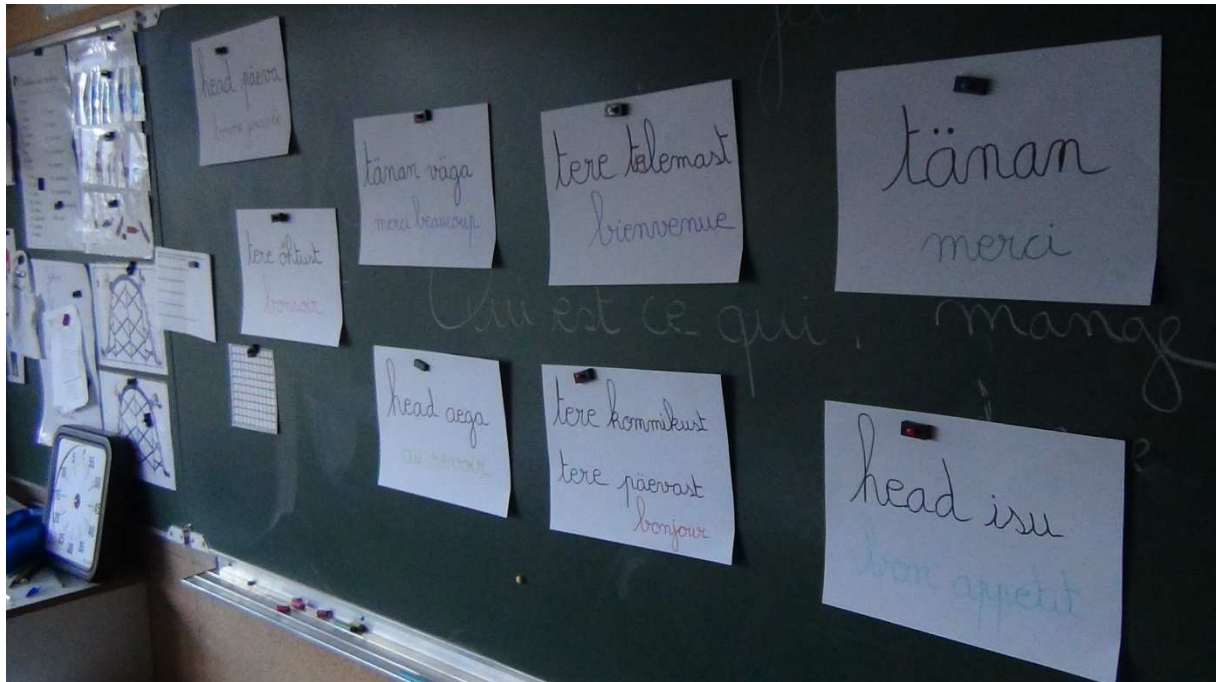 head päeva
bonne journée
tere õhtust
bonsoir
tänan väga
merci beaucoup
head aega
au revoir
tere telemast
bienvenue
tere kommikust
tere päevast
bonjour
tänan
merci
head isu
bon appetit
Qui est ce qui mange